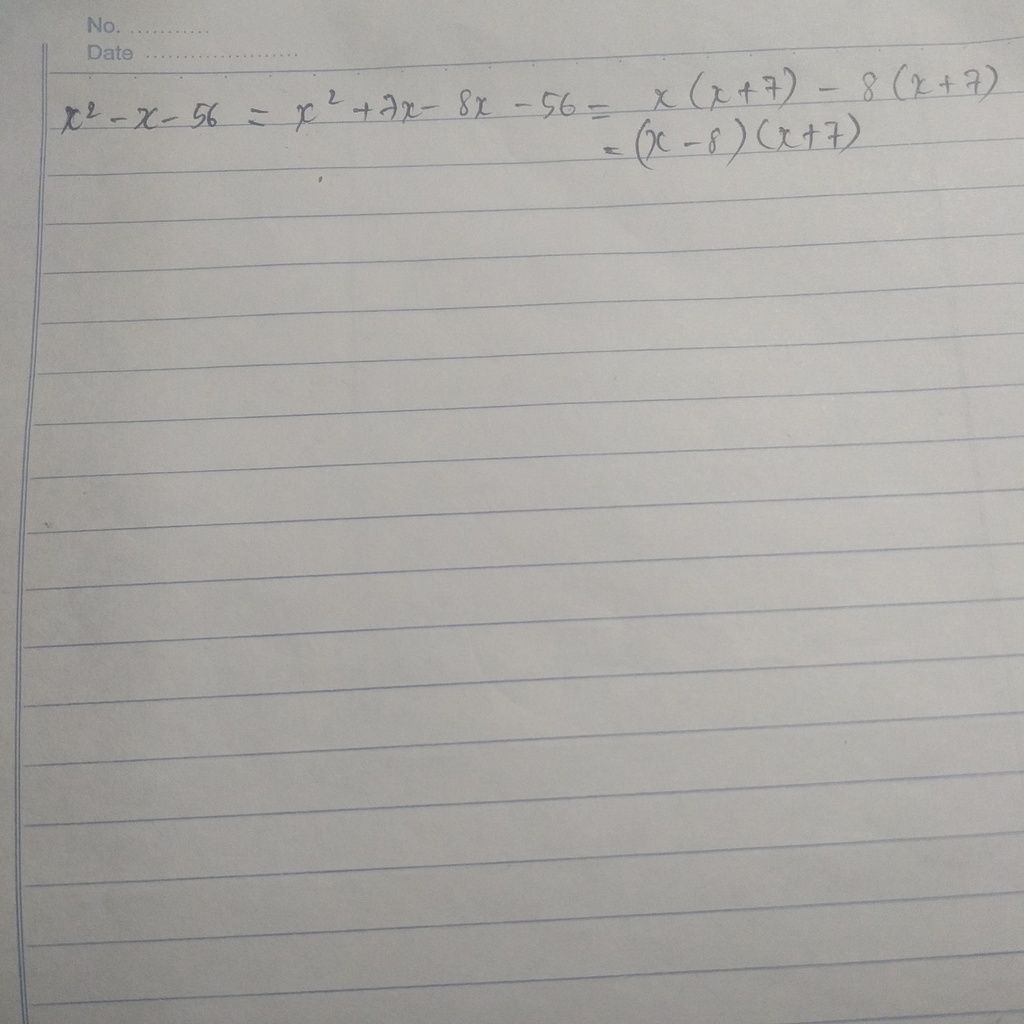 No. ...........
Date .....................
x² - x - 56 = x² + 7x - 8x - 56 = x(x+7) - 8(x+7)
= (x - 8)(x+7)